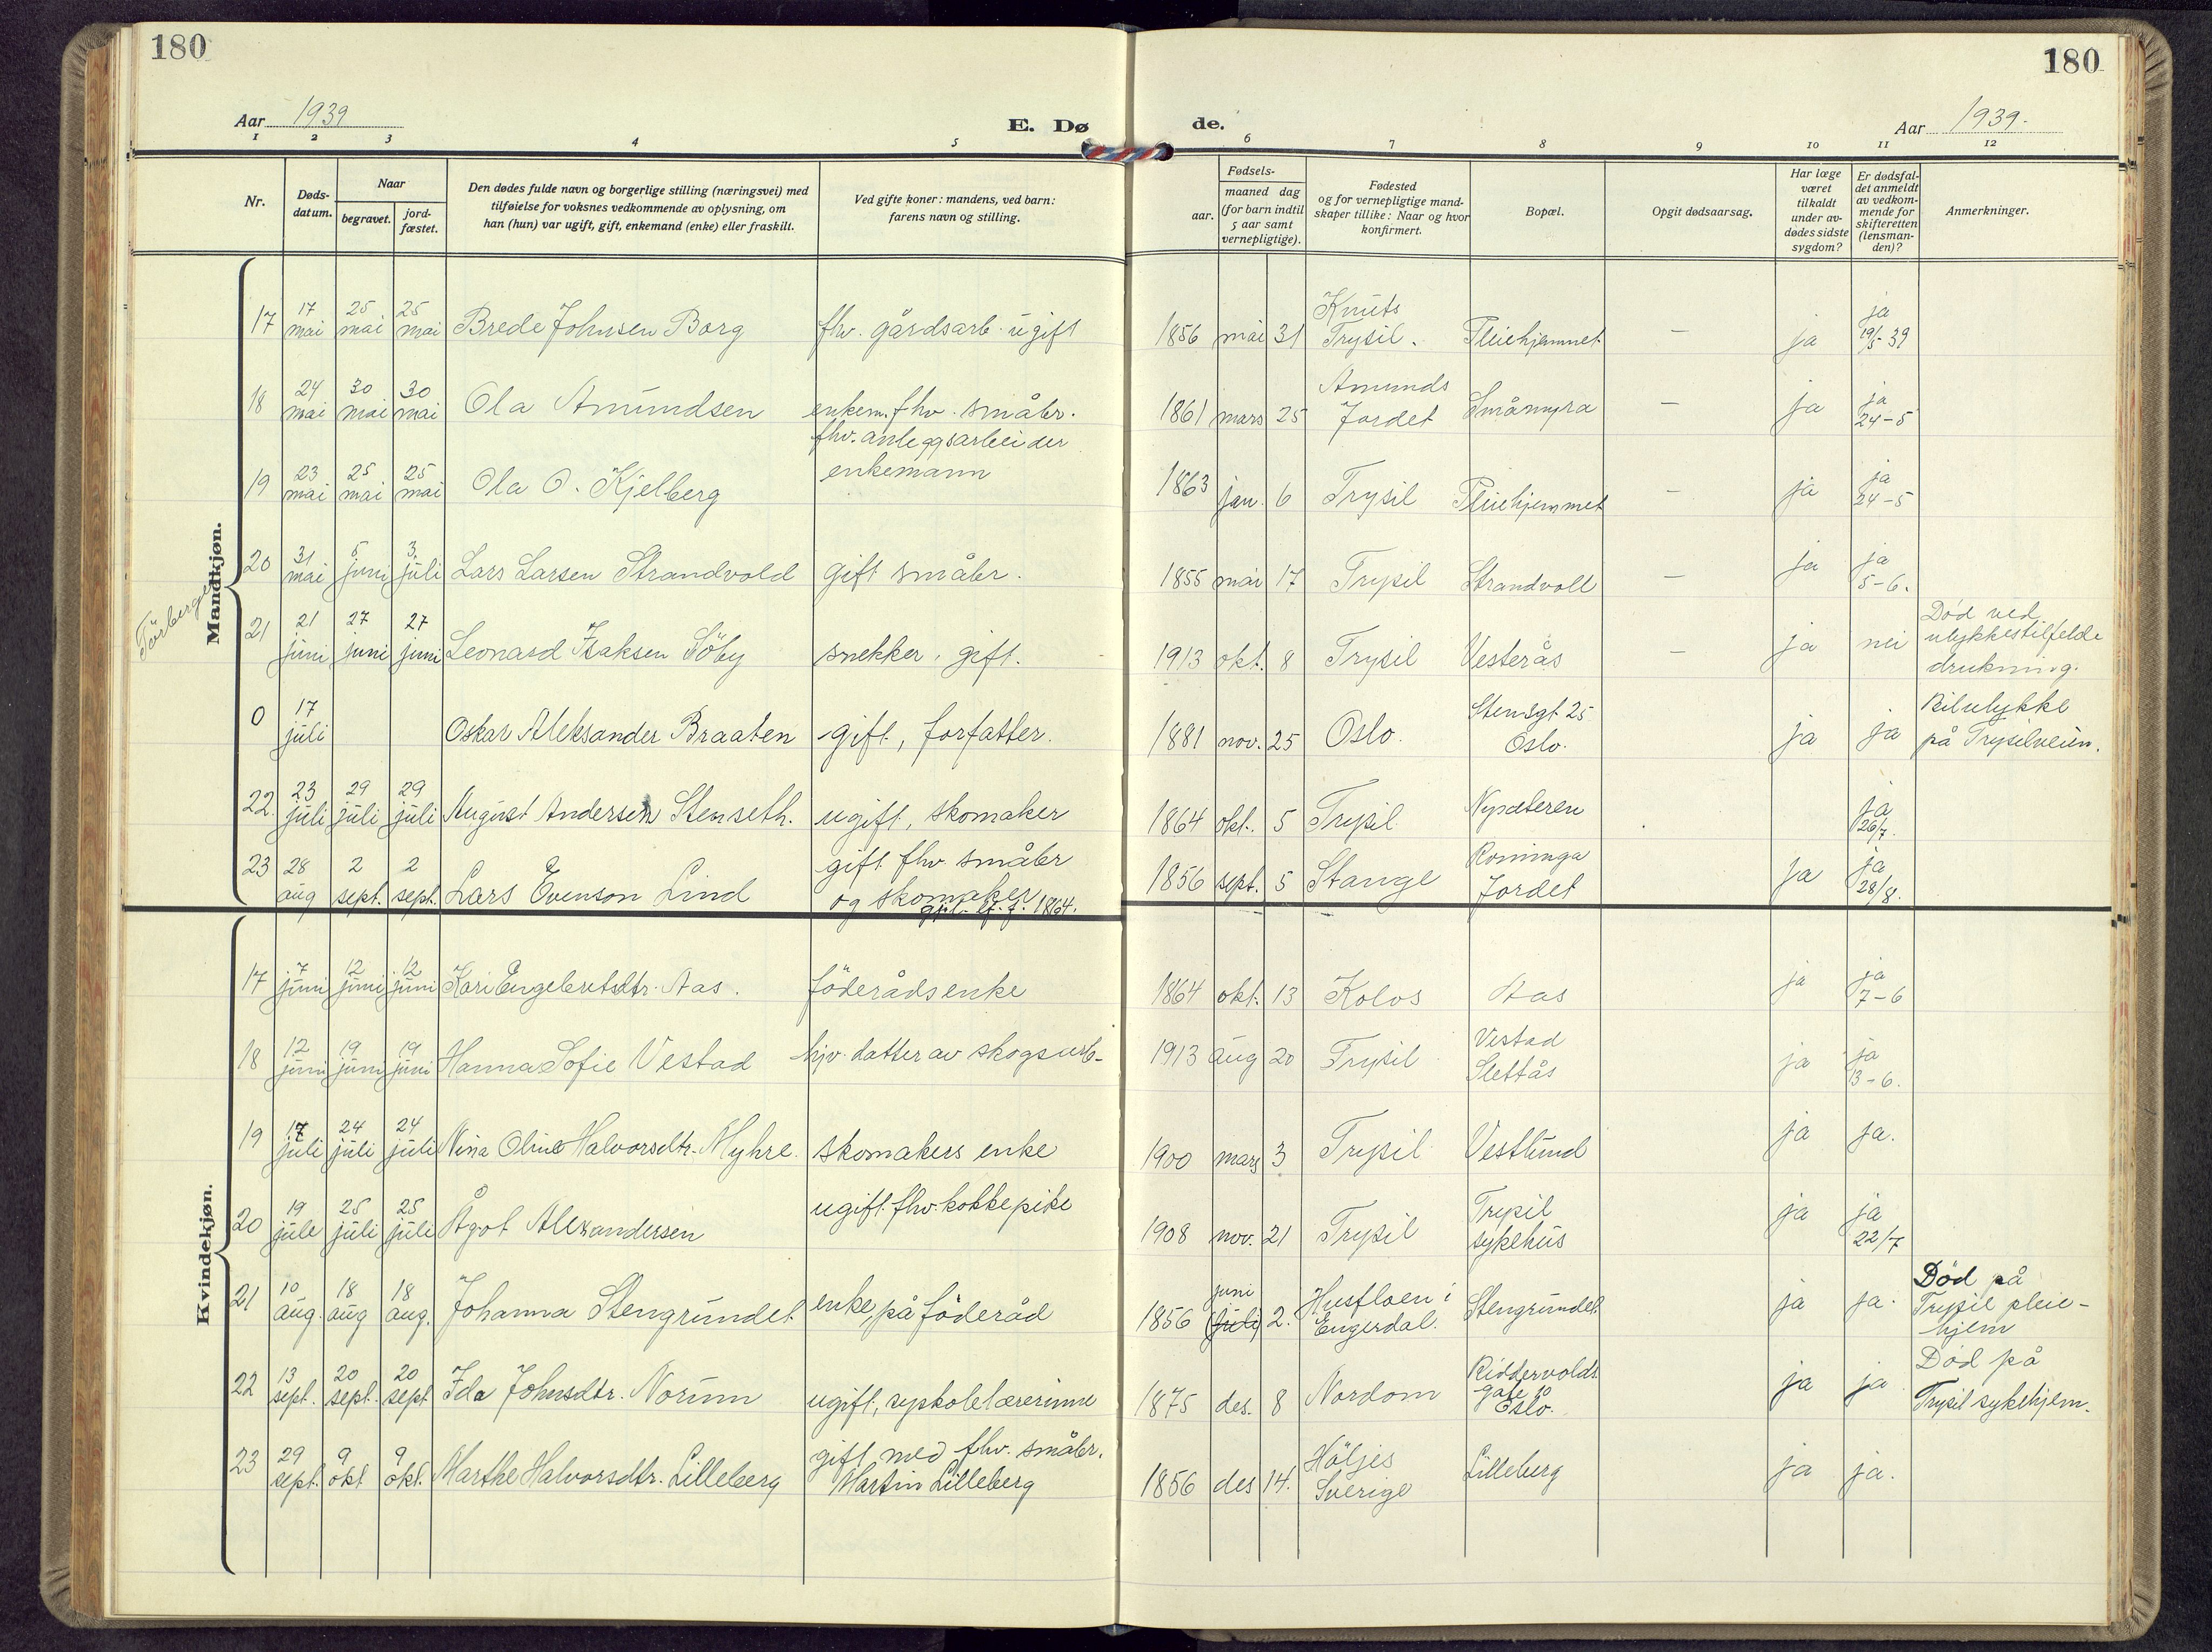 180
180
Aar 1939
E. Dø
de.
Aar 1939.
1 2 3 4 5 6 7 8 9 10 11 12
Nr.
Døds-
datum.
Naar
begravet.
jord-
fæstet.
Den dødes fulde navn og borgerlige stilling (næringsvei) med
tilføielse for voksnes vedkommende av oplysning, om
han (hun) var ugift, gift, enkemand (enke) eller fraskilt.
Ved gifte koner: mandens, ved barn:
farens navn og stilling.
Fødsels-
aar.
maaned dag
(for barn indtil
5 aar samt
vernepligtige).
Fødested
og for vernepligtige mand-
skaper tillike: Naar og hvor
konfirmert.
Bopæl.
Opgit dødsaarsag.
Har læge
været
tilkaldt
under av-
dødes sidste
sygdom?
Er dødsfal-
det anmeldt
av vedkom-
mende for
skifteretten
(lensman-
den)?
Anmerkninger.
Mandkjøn.
17 17 mai 25 mai 25 mai Brede Johnsen Borg fhv. gårdsarb. ugift 1856 mai 31 Knuts Trysil. Pleiehjemmet — ja ja 19/5-39
18 24 mai 30 mai 30 mai Ola Amundsen enkem. fhv. småbr. 1861 mars 25 Amunds Jordet Småmyra — ja ja 24-5
19 23 mai 25 mai 25 mai Ola O. Kjelberg fhv. anleggsarbeider enkemann 1863 jan. 6 Trysil Pleiehjemmet — ja ja 24-5
20 31 mai 5 juni 3. juli Lars Larsen Strandvold gift småbr. 1855 mai 17 Trysil Strandvoll — ja ja 5-6.
21 21 juni 27 juni 27 juni Leonard Isaksen Söby snekker, gift. 1913 okt. 8 Trysil Vesterås — ja nei Död ved ulykkestilfelde drukning.
0 17 juli Oskar Aleksander Braaten gift, forfatter. 1881 nov. 25 Oslo. Stensgt 25 Oslo. ja ja Bilulykke på Trysilveien.
22. 23 juli 29 juli 29 juli August Andersen Stenseth. ugift, skomaker 1864 okt. 5 Trysil Nysæteren ja 26/7.
23 28 aug 2 sept. 2 sept. Lars Evenson Lind gift fhv. småbr og skomaker 1864. 1856 sept. 5 Stange Jordet ja ja 28/8.
Kvindekjøn.
17 7 juni 12 juni 12 juni Kari Engebretsdtr. Aas. föderådsenke 1864 okt. 13 Kolos Aas ja ja 7-6
18 12 juni 19 juni 19 juni Hanna Sofie Vestad hjv. datter av skogsarb- 1913 aug 20 Trysil Vestad Slettås ja ja 13-6.
19 17 juli 24 juli 24 juli Nina Oline Halvorsdtr. Myhre. skomakers enke 1900 mars 3 Trysil Vestlund ja ja.
20 19 juli 25 juli 25 juli Ågot Alexandersen ugift fhv. kokkepike 1908 nov. 21 Trysil Trysil sykehus ja ja 22/7
21 10 aug. 18 aug 18 aug. Johanna Stengrundet enke, på föderåd 1856 juni (juli) 2. Husfloen i Engerdal. Stengrundet ja ja. Död på Trysil pleie- hjem
22 13 sept. 20 sept. 20 sept Ida Johnsdtr. Norum ugift, syskolelærerinne 1875 des. 8 Nordom Riddervolds gate 10 Oslo. ja ja Död på Trysil sykehjem.
23 29 sept. 9 okt 9 okt. Marthe Halvorsdtr. Lilleberg gift med fhv. småbr. Martin Lilleberg 1856 des 14. Höljes Sverige Lilleberg ja ja.